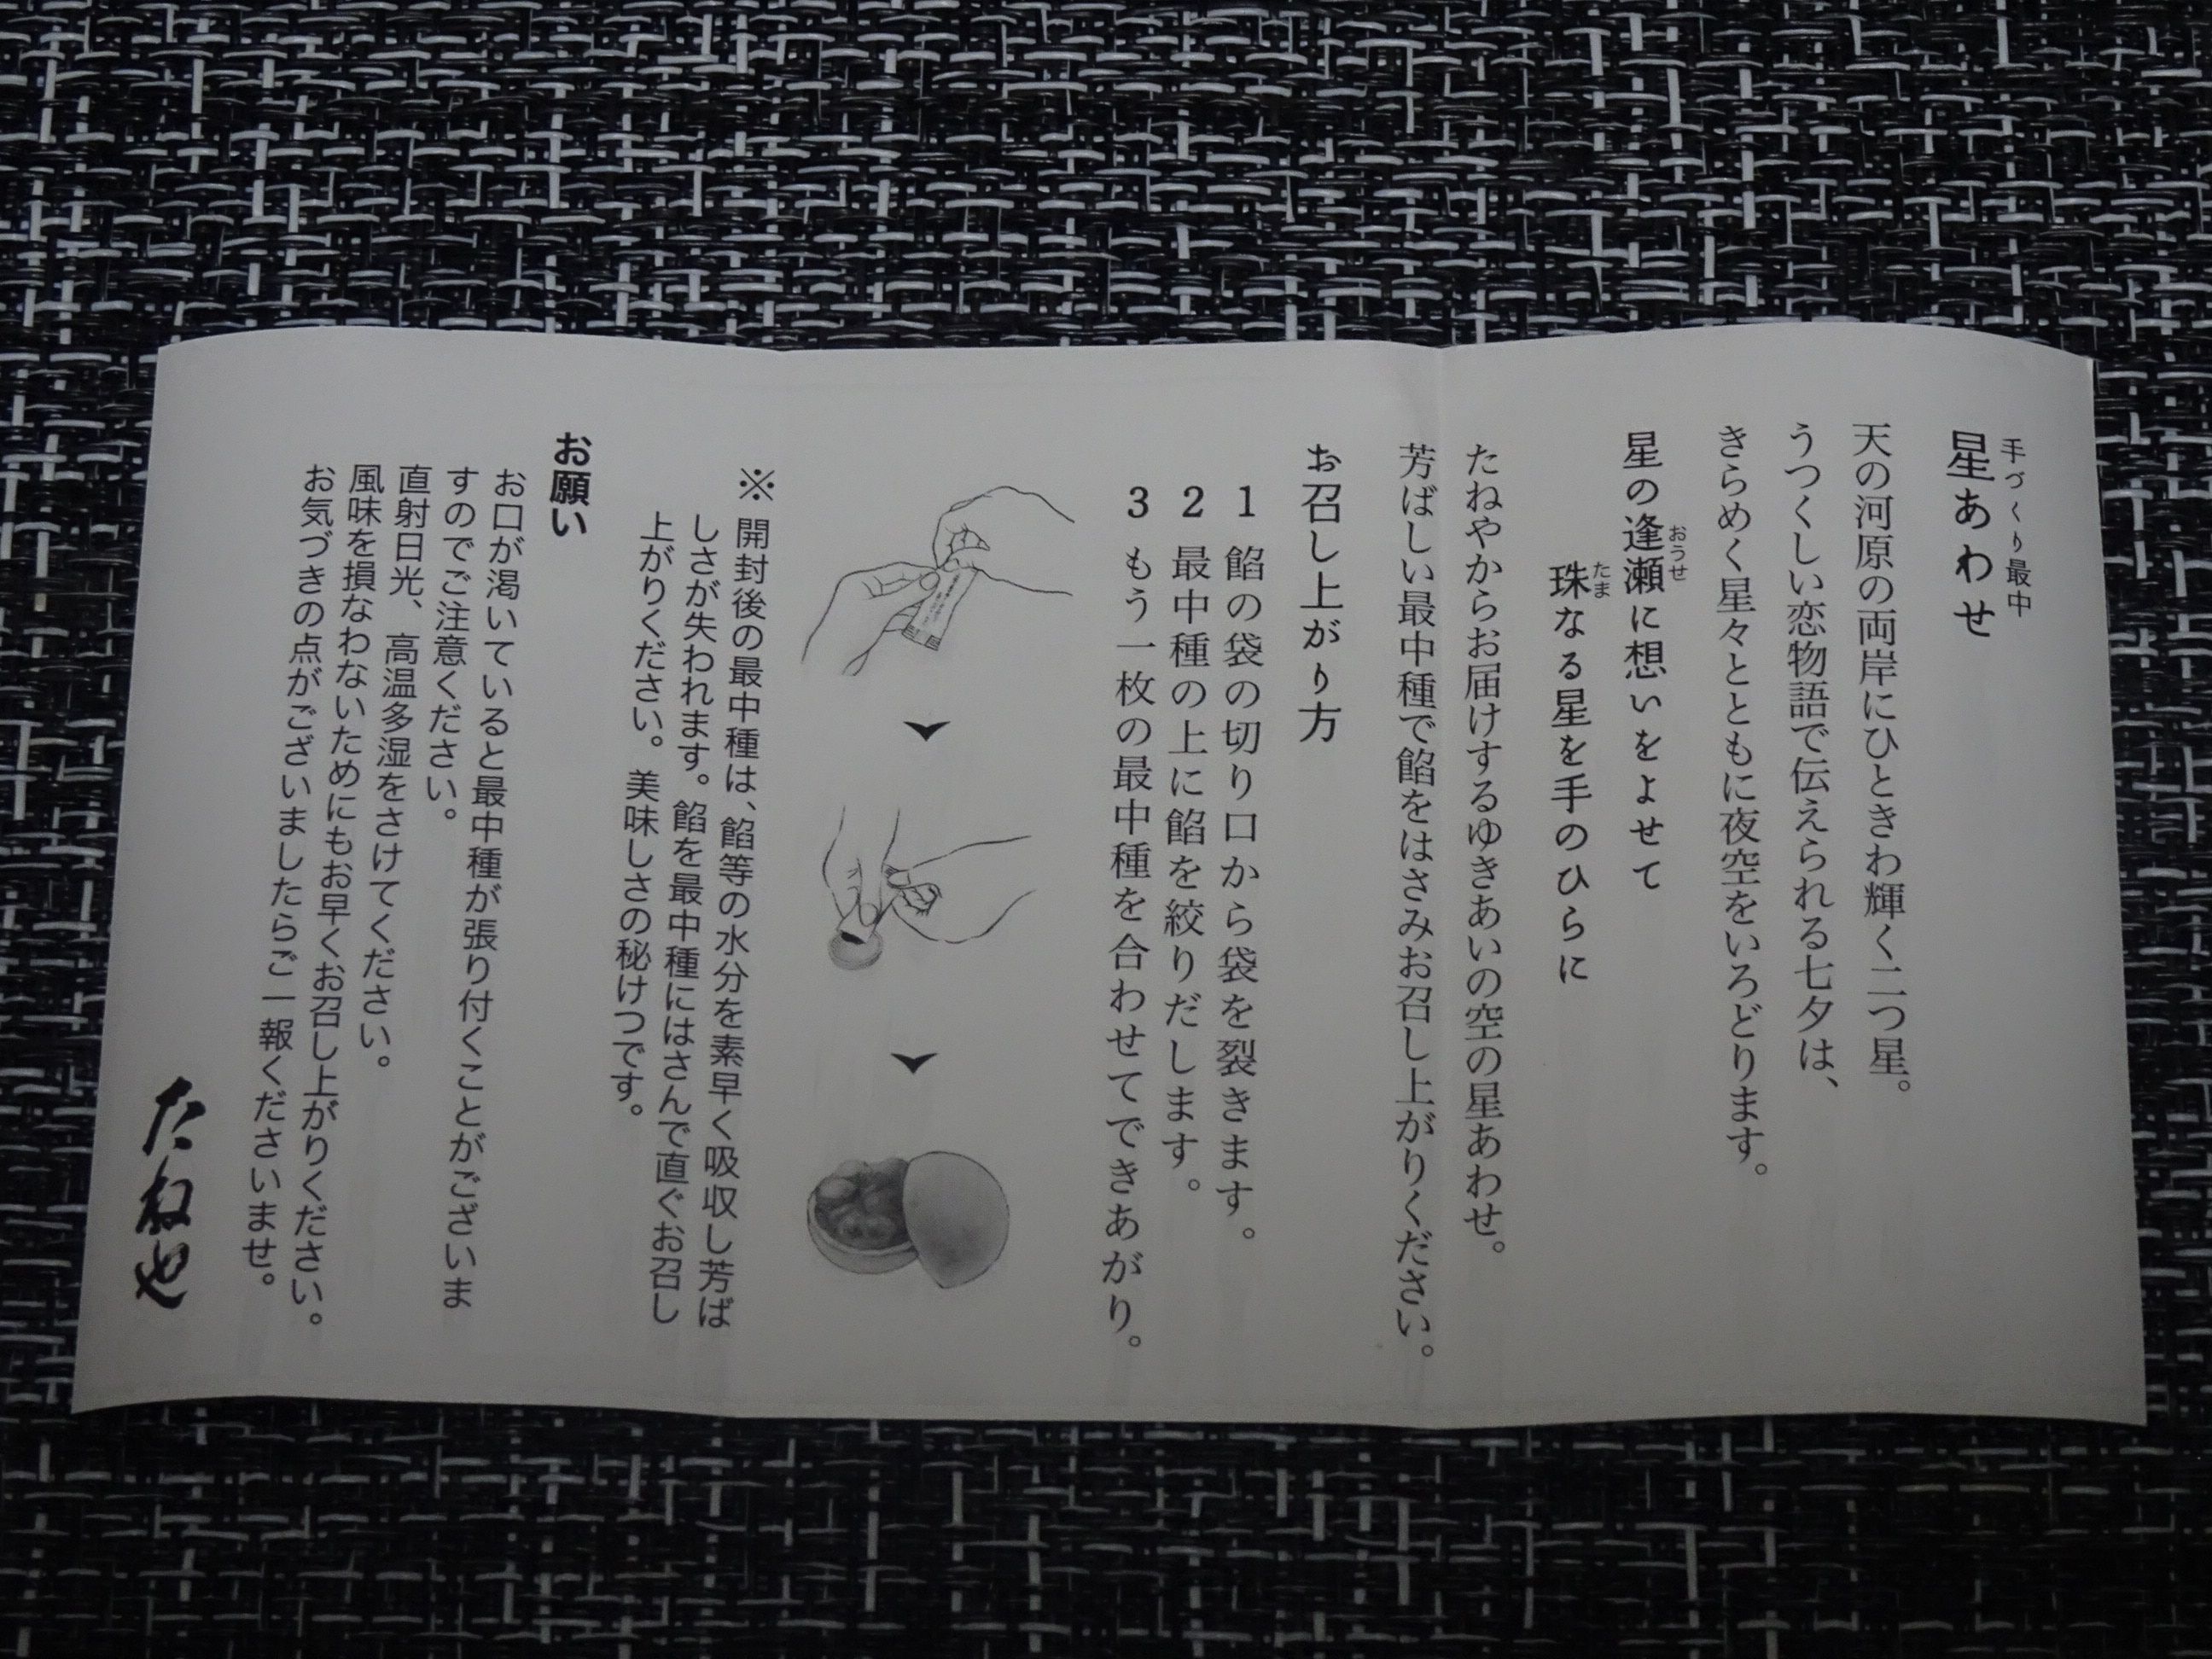 手づくり最中
星あわせ
天の河原の両岸にひときわ輝く二つ星。
うつくしい恋物語で伝えられる七夕は、
きらめく星々とともに夜空をいろどります。
星の逢瀬に想いをよせて
おうせ
珠なる星を手のひらに
たま
たねやからお届けするゆきあいの空の星あわせ。
芳ばしい最中種で餡をはさみお召し上がりください。
お召し上がり方
1 餡の袋の切り口から袋を裂きます。
2 最中種の上に餡を絞りだします。
3 もう一枚の最中種を合わせてできあがり。
※開封後の最中種は、餡等の水分を素早く吸収し芳ば
しさが失われます。餡を最中種にはさんで直ぐお召し
上がりください。美味しさの秘けつです。
お願い
お口が渇いていると最中種が張り付くことがございま
すのでご注意ください。
直射日光、高温多湿をさけてください。
風味を損なわないためにもお早くお召し上がりください。
お気づきの点がございましたらご一報くださいませ。
たねや